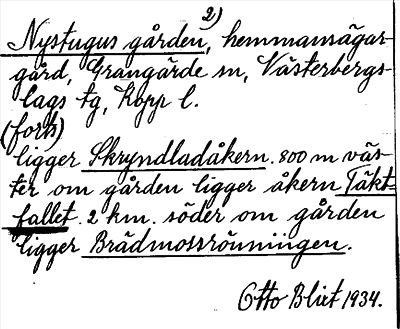 2)
Nystugus gården, hemmansägar-
gård, Grangärde sn, Västerbergs-
lags tg, Kopp l.
(forts)
ligger Skryndladåkern. 800 m väs-
ter om gården ligger åkern Täkt-
fallet. 2 km. söder om gården
ligger Brädmossrönningen.
Otto Blixt 1934.